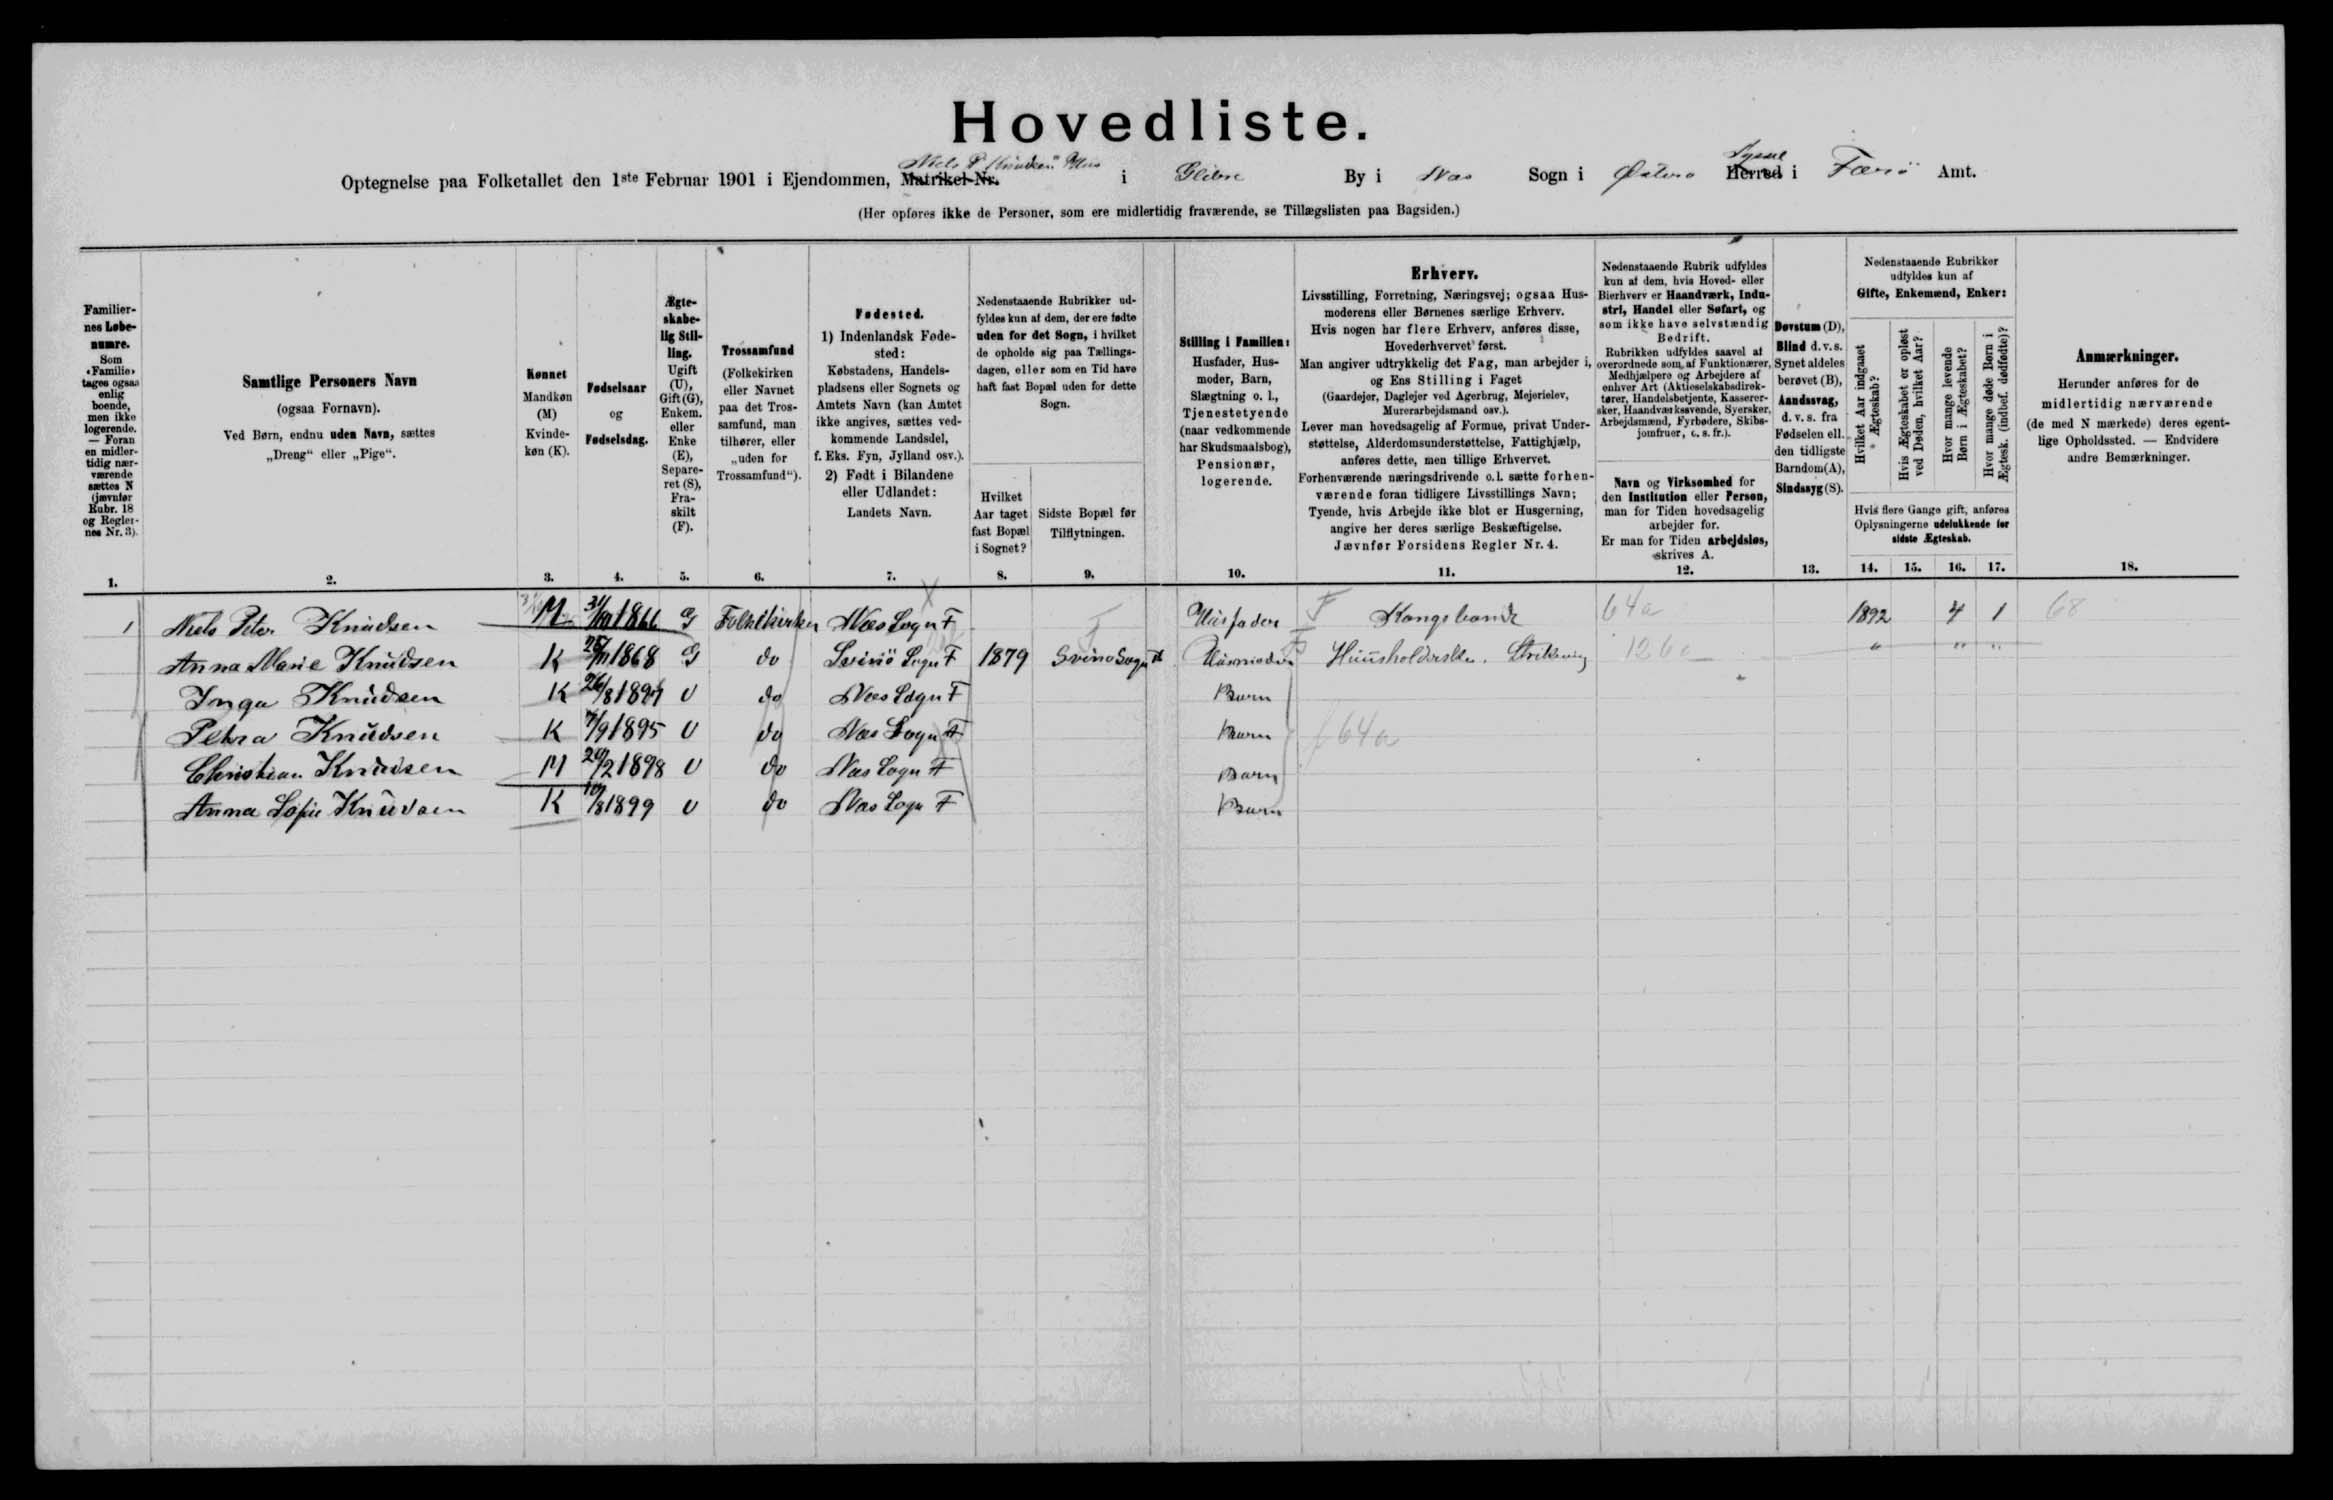 Hovedliste.
Optegnelse paa Folketallet den 1ste Februar 1901 i Ejendommen, Matrikel-Nr. Niels P. Knudsen Hus i Glibre By i Næs Sogn i Østerø Herred Syssel i Færø Amt.
(Her opføres ikke de Personer, som ere midlertidig fraværende, se Tillægslisten paa Bagsiden.)
Familier-
nes Løbe-
numre.
Som
«Familie»
tages ogsaa
enlig
boende,
men ikke
logerende.
— Foran
en midler-
tidig nær-
værende
sættes N
(jævnfør
Rubr. 18
og Regler-
nes Nr. 3).
1.
Samtlige Personers Navn
(ogsaa Fornavn).
Ved Børn, endnu uden Navn, sættes
„Dreng“ eller „Pige“.
2.
Kønnet
Mandkøn
(M)
Kvinde-
køn (K).
3.
Fødselsaar
og
Fødselsdag.
4.
Ægte-
skabe-
lig Stil-
ling.
Ugift
(U),
Gift (G),
Enkem.
eller
Enke
(E),
Separe-
ret (S),
Fra-
skilt
(F).
5.
Trossamfund
(Folkekirken
eller Navnet
paa det Tros-
samfund, man
tilhører, eller
„uden for
Trossamfund“).
6.
Fødested.
1) Indenlandsk Føde-
sted:
Købstadens, Handels-
pladsens eller Sognets og
Amtets Navn (kan Amtet
ikke angives, sættes ved-
kommende Landsdel,
f. Eks. Fyn, Jylland osv.).
2) Født i Bilandene
eller Udlandet:
Landets Navn.
7.
Nedenstaaende Rubrikker ud-
fyldes kun af dem, der ere fødte
uden for det Sogn, i hvilket
de opholde sig paa Tællings-
dagen, eller som en Tid have
haft fast Bopæl uden for dette
Sogn.
Hvilket
Aar taget
fast Bopæl
i Sognet?
8.
Sidste Bopæl før
Tilflytningen.
9.
Stilling i Familien:
Husfader, Hus-
moder, Barn,
Slægtning o. l.,
Tjenestetyende
(naar vedkommende
har Skudsmaalsbog),
Pensionær,
logerende.
10.
Erhverv.
Livsstilling, Forretning, Næringsvej; ogsaa Hus-
moderens eller Børnenes særlige Erhverv.
Hvis nogen har flere Erhverv, anføres disse,
Hovederhvervet først.
Man angiver udtrykkelig det Fag, man arbejder i,
og Ens Stilling i Faget
(Gaardejer, Daglejer ved Agerbrug, Mejerielev,
Murerarbejdsmand osv.).
Lever man hovedsagelig af Formue, privat Under-
støttelse, Alderdomsunderstøttelse, Fattighjælp,
anføres dette, men tillige Erhvervet.
Forhenværende næringsdrivende o. l. sætte forhen-
værende foran tidligere Livsstillings Navn;
Tyende, hvis Arbejde ikke blot er Husgerning,
angive her deres særlige Beskæftigelse.
Jævnfør Forsidens Regler Nr. 4.
11.
Nedenstaaende Rubrik udfyldes
kun af dem, hvis Hoved- eller
Bierhverv er Haandværk, Indu-
stri, Handel eller Søfart, og
som ikke have selvstændig
Bedrift.
Rubrikken udfyldes saavel af
overordnede som af Funktionærer,
Medhjælpere og Arbejdere af
enhver Art (Aktieselskabsdirek-
tører, Handelsbetjente, Kasserer-
sker, Haandværkssvende, Syersker,
Arbejdsmænd, Fyrbødere, Skibs-
jomfruer, o. s. fr.).
Navn og Virksomhed for
den Institution eller Person,
man for Tiden hovedsagelig
arbejder for.
Er man for Tiden arbejdsløs,
skrives A.
12.
Døvstum (D),
Blind d. v. s.
Synet aldeles
berøvet (B),
Aandssvag,
d. v. s. fra
Fødselen ell.
den tidligste
Barndom (A),
Sindssyg (S).
13.
Nedenstaaende Rubrikker
udfyldes kun af
Gifte, Enkemænd, Enker:
Hvilket Aar indgaaet
Ægteskab?
Hvis Ægteskabet er opløst
ved Døden, hvilket Aar?
Hvor mange levende
Børn i Ægteskabet?
Hvor mange døde Børn i
Ægtesk. (indbef. dødfødte)?
Hvis flere Gange gift, anføres
Oplysningerne udelukkende for
sidste Ægteskab.
14. 15. 16. 17.
Anmærkninger.
Herunder anføres for de
midlertidig nærværende
(de med N mærkede) deres egent-
lige Opholdssted. — Endvidere
andre Bemærkninger.
18.
1 Niels Peter Knudsen M 31/10 1866 G Folkekirken Næs Sogn F Husfader F Kongsbonde 64a 1892 4 1 68
Anna Marie Knudsen K 1868 G do Svinö Sogn F 1879 Svino Sogn F Husmoder Huusholderske. Strikning 126 " " "
Inga Knudsen K 26/8 U do Næs Sogn F Barn
Petra Knudsen K 7/9 1895 U do Næs Sogn F Barn 64a
Christian Knudsen M 20/2 1898 U do Næs Sogn F Barn
Anna Sofie Knudsen K 10/8 1899 U do Næs Sogn F Barn